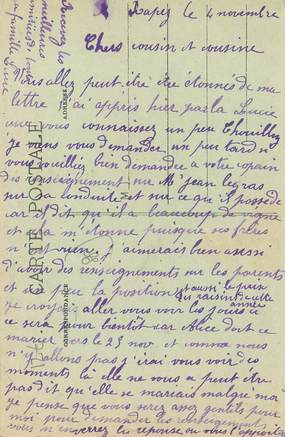 le 4 novembre
Chers cousin et cousine
Vous allez peut être être étonnés de ma
lettre j'ai appris hier par la Lucie
que vous connaissez un peu Chouilly
je viens vous demander un peu tard si
vous vouliez bien demander a votre copain
des renseignement sur Mr jean legras
sur sa conduite et sur ce qu'il possède
car il dit qu'il a beaucoup de vigne
et sa m'étonne puisque ses frères
n'est rien j'aimerais bien aussi
d'avoir des renseignements sur les parents
et la position et aussi le prix
du raisin cette année
je croyais aller vous voir les jours ci
ce sera pour bientôt car Alice doit ce
marier vers le 25 nov et comme nous
n'y allons pas j'irai vous voir ces
moments là elle ne vous a peut être
pas dit qu'elle se mariais malgré moi
je pense que vous serez assez gentils pour
moi pour demander les renseignements
vous m'enverrez la réponse ou vous l'apporter
Recevez les
meilleures
amitiés de toute
la famille
CARTE POSTALE
CORRESPONDANCE
ADRESSE